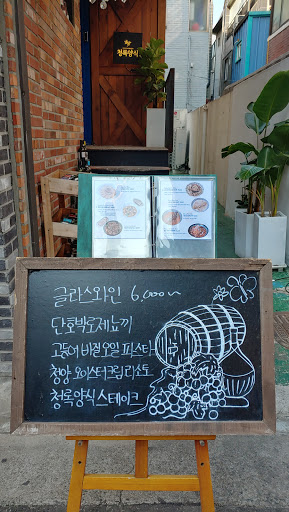 청록양식
글라스와인 6,000~
단호박로제뇨끼
고등어 바질오일 파스타
청양 오이스터크림리조또
청록양식 스테이크